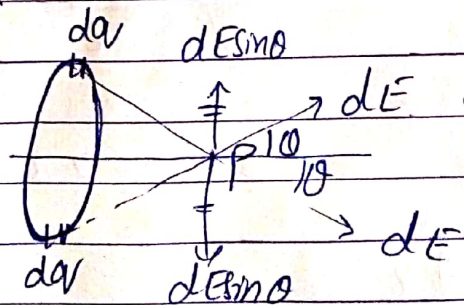 dq
dEsinθ
dE
P θ
θ
dE
dq
dEsinθ